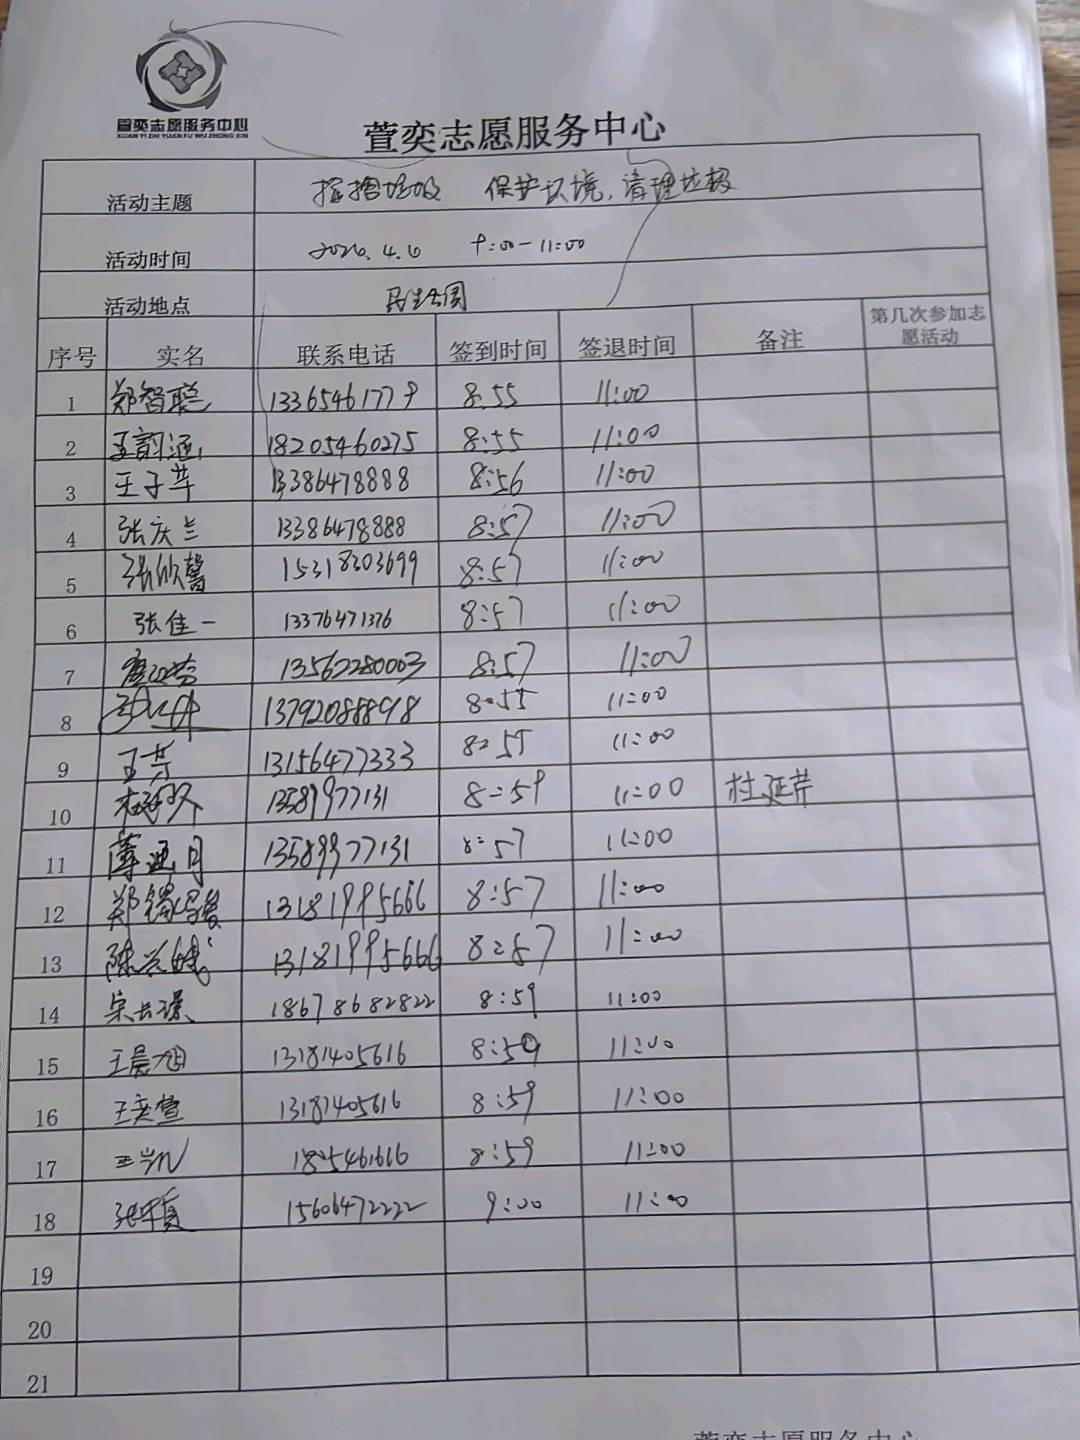 萱奕志愿服务中心
XUAN YI ZHI YUAN FU WU ZHONG XIN
萱奕志愿服务中心
活动主题 捡拾垃圾 保护环境,清理垃圾
活动时间 9:00-11:00
活动地点 民生公园
序号 实名 联系电话 签到时间 签退时间 备注 第几次参加志愿活动
1 郑智聪 13365461779 8:55 11:00
2 王韵涵 18205460275 8:55 11:00
3 王子苹 13386478888 8:56 11:00
4 张庆兰 13386478888 8:57 11:00
5 张欣馨 15318303699 8:57 11:00
6 张佳一 13376471376 8:57 11:00
7 13562280003 8:57 11:00
8 13792088898 8:55 11:00
9 王芳 13156477333 8:55 11:00
10 13589977131 8:59 11:00 杜延芹
11 13589977131 8:57 11:00
12 13181995666 8:57 11:00
13 13181995666 8:57 11:00
14 18678682822 8:59 11:00
15 王晨旭 13181405616 8:59 11:00
16 王奕萱 13181405616 8:59 11:00
17 8:59 11:00
18 15606472222 9:00 11:00
19
20
21
萱奕志愿服务中心